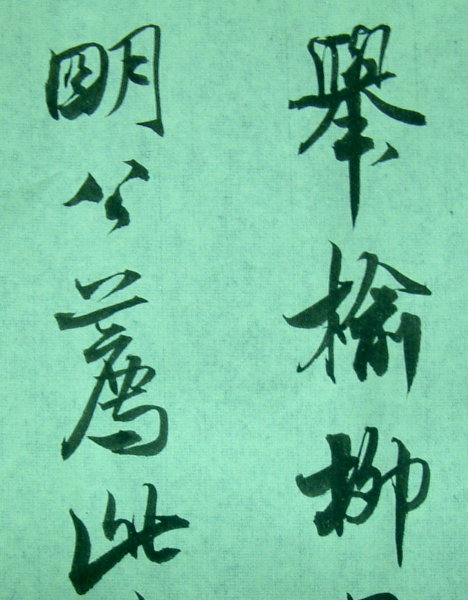 舉榆柳
明公薦此